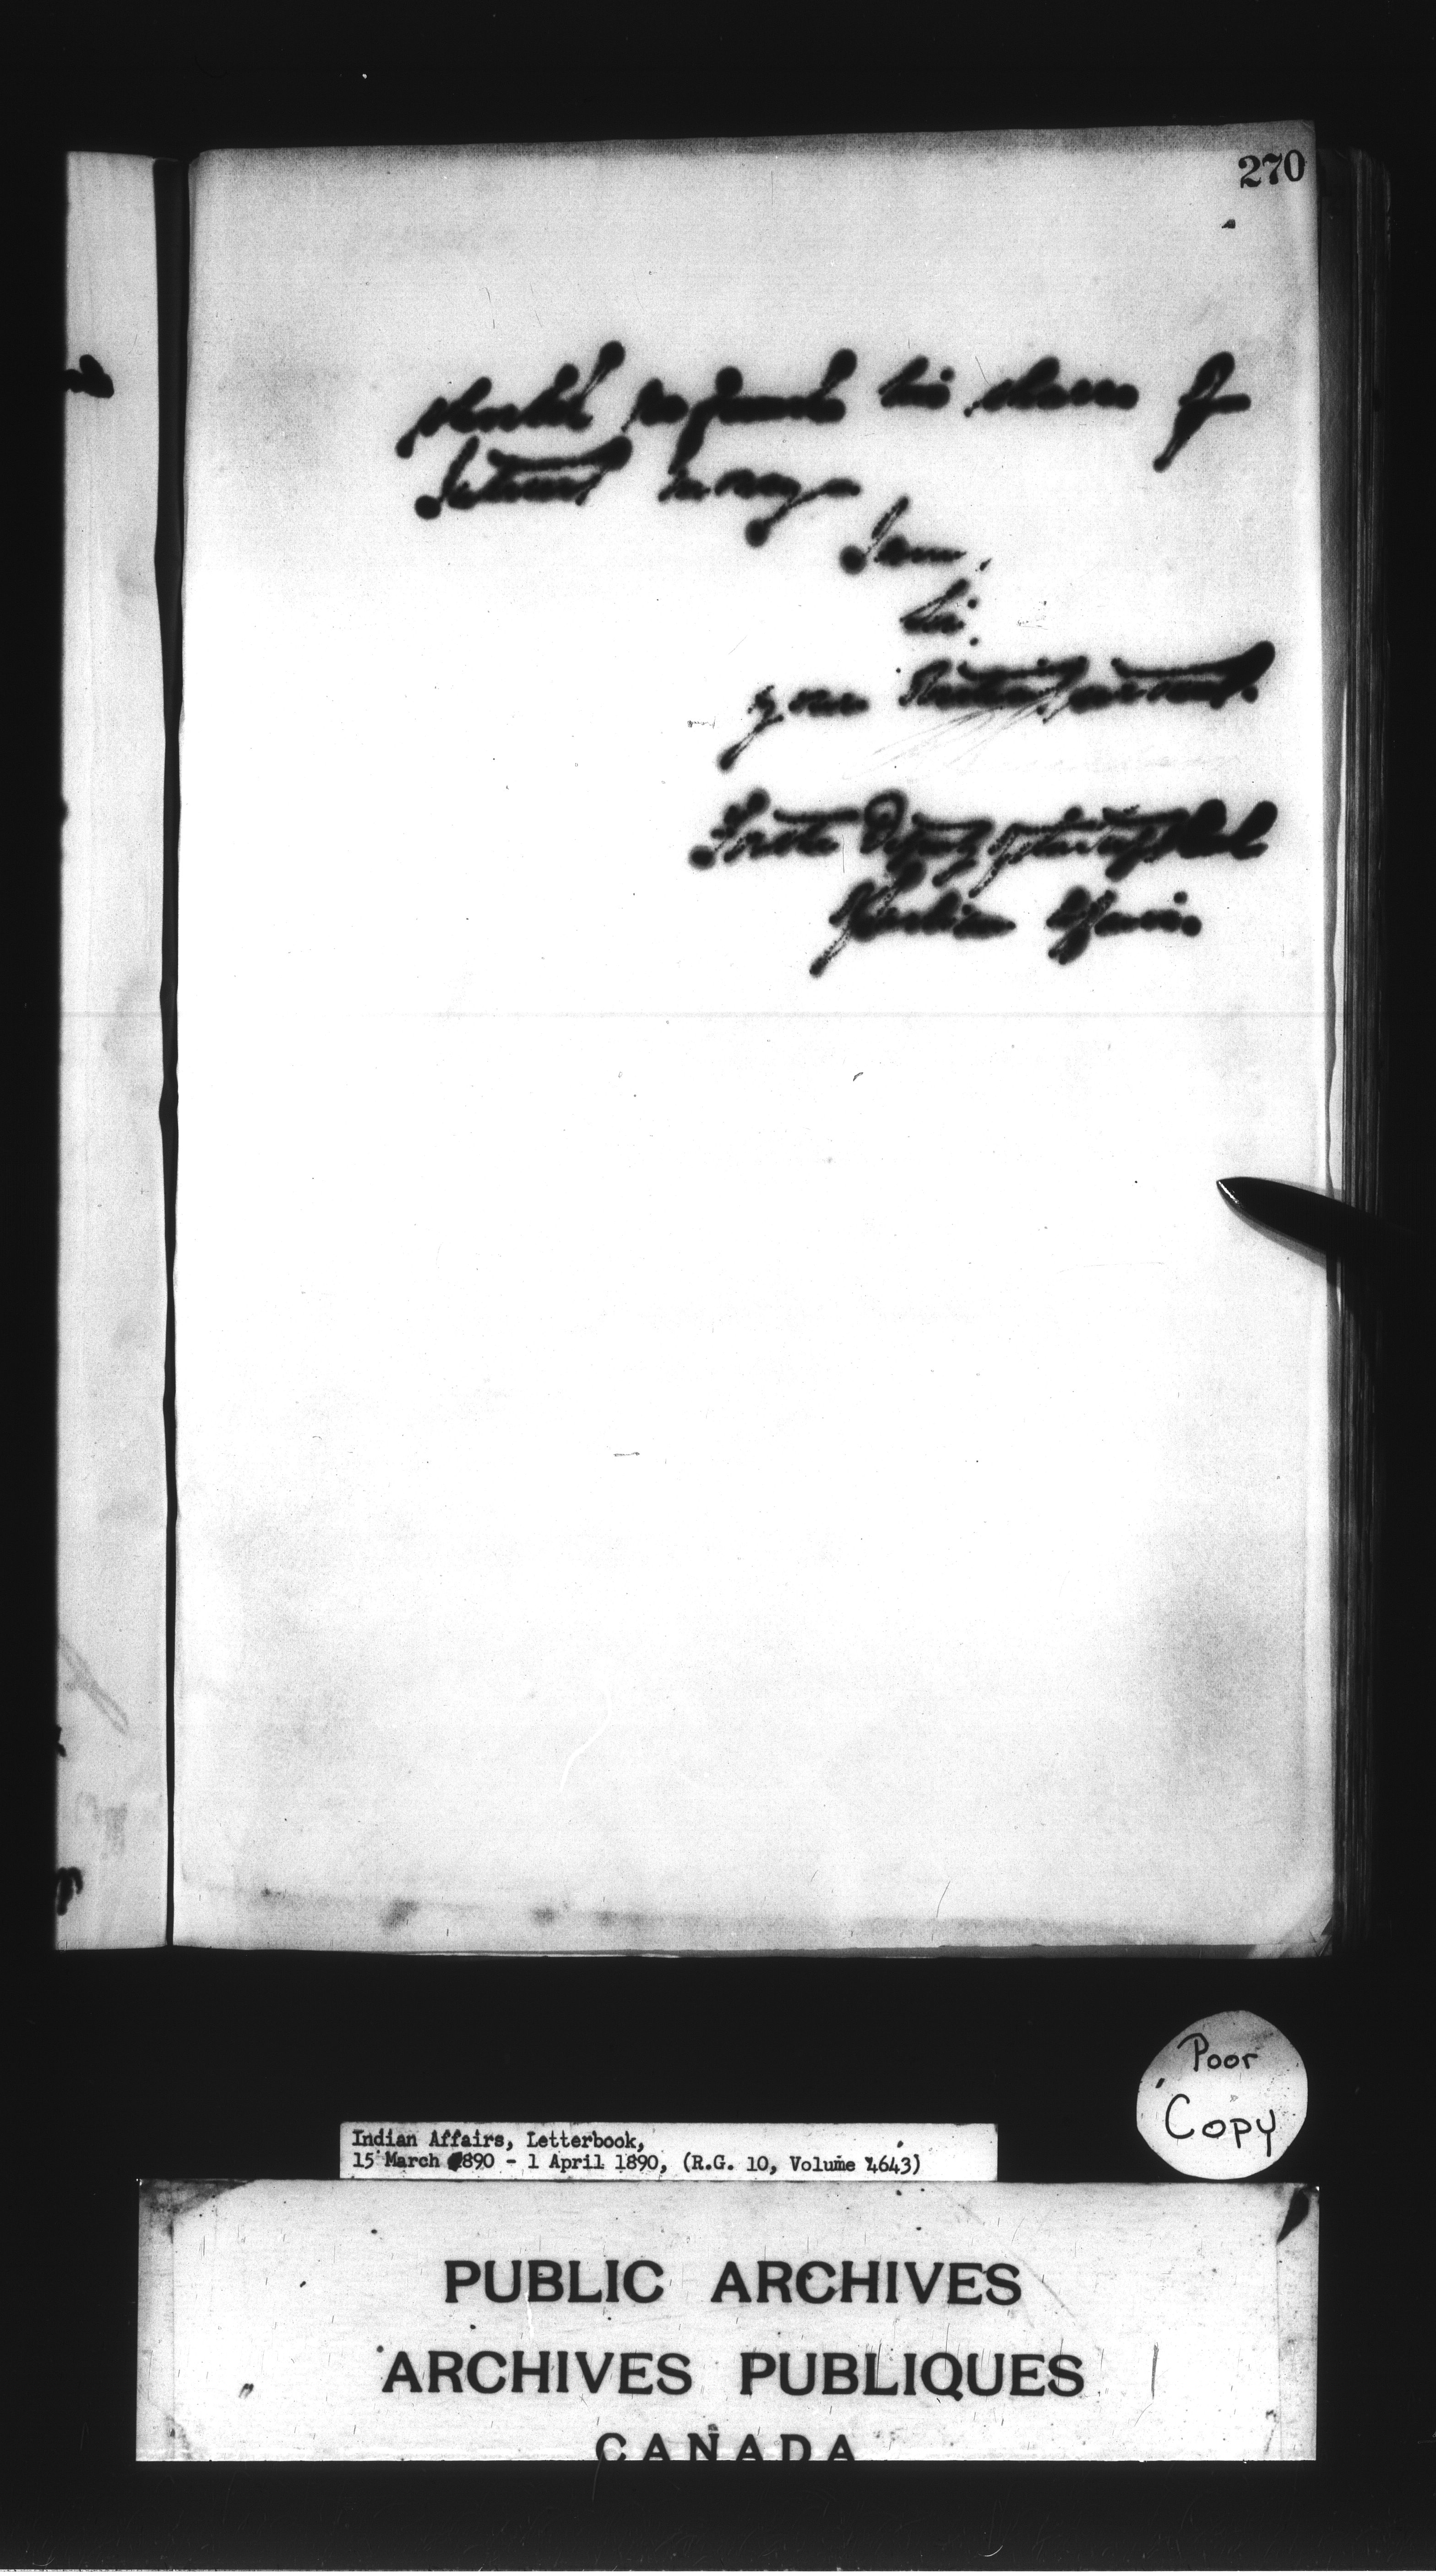 270
should refund his share of
Interest money
I am,
Sir,
your obedient servant.
For the Deputy of the Supt Genl
Indian Affairs
Poor
Copy
Indian Affairs, Letterbook,
15 March 1890 - 1 April 1890, (R.G. 10, Volume 4643)
PUBLIC ARCHIVES
ARCHIVES PUBLIQUES
CANADA